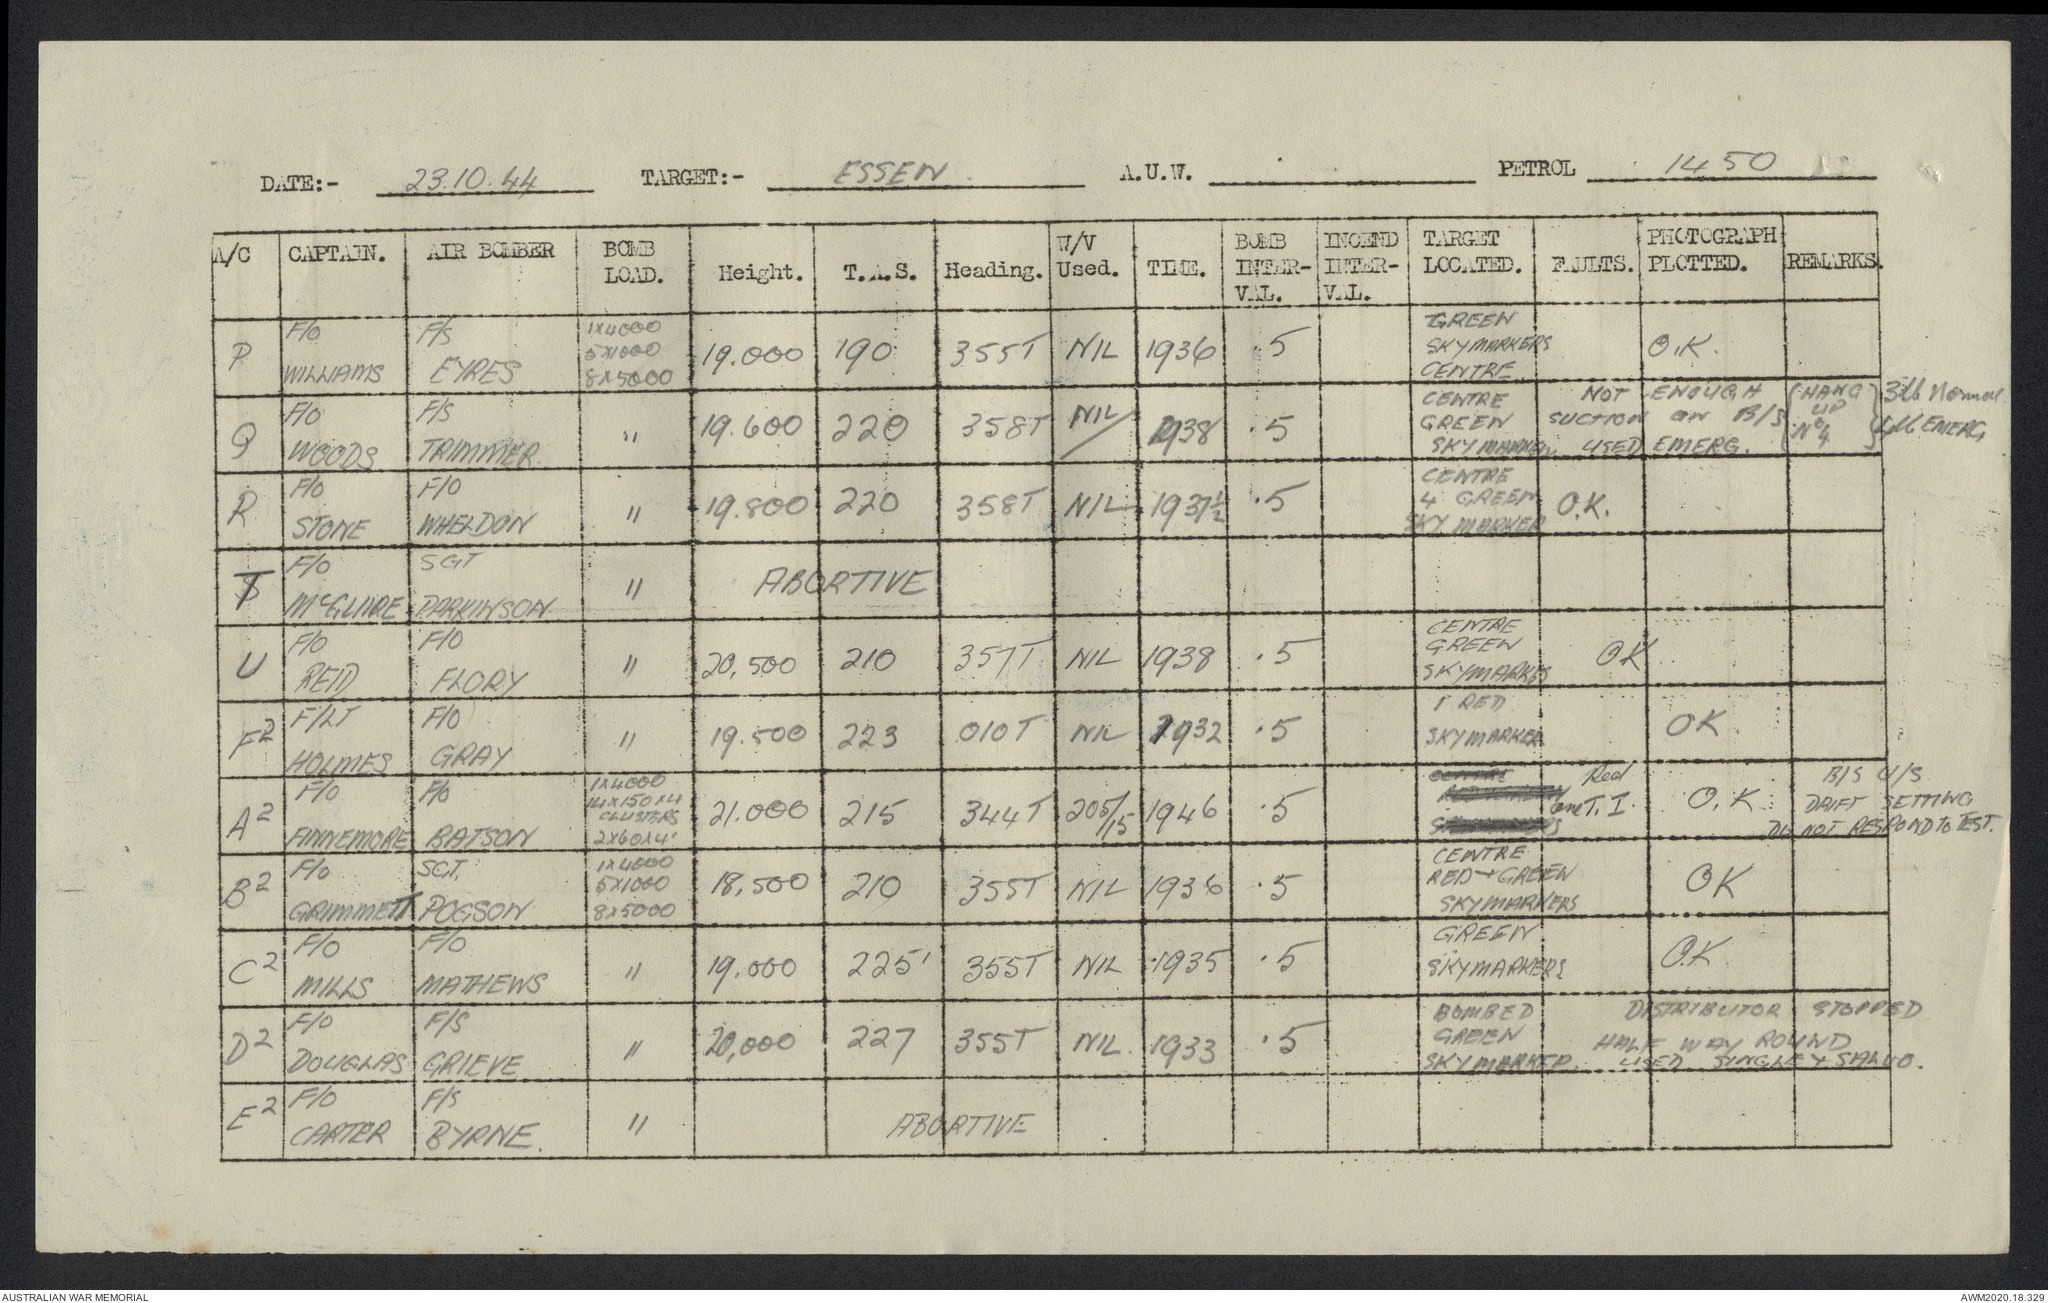 DATE:- 23.10.44 TARGET:- ESSEN A.U.W. PETROL 1450
A/C CAPTAIN. AIR BOMBER BOMB LOAD. Height. T.A.S. Heading. W/V Used. TIME. BOMB INTER-VAL. INCEND INTER-VAL. TARGET LOCATED. FAULTS. PHOTOGRAPH PLOTTED. REMARKS.
P F/O WILLIAMS F/S EYRES 1x4000 5x1000 8x5000 19.000 190 355T NIL 1936 .5 GREEN SKYMARKERS CENTRE O.K.
Q F/O WOODS F/S TRIMMER " 19.600 220 358T NIL 1938 .5 CENTRE GREEN SKYMARKER NOT ENOUGH SUCTION ON B/S USED EMERG. (HANG UP No 4) Normal EMERG
R F/O STONE F/O WHELDON " 19.800 220 358T NIL 1937½ .5 CENTRE 4 GREEN SKYMARKER O.K.
F/O McGUIRE SGT PARKINSON " ABORTIVE
U F/O REID F/O FLORY " 20,500 210 357T NIL 1938 .5 CENTRE GREEN SKYMARKS OK
F2 F/LT HOLMES F/O GRAY " 19.500 223 010T NIL 1932 .5 1 RED SKYMARKER OK
A2 F/O FINNEMORE F/O BATSON 1x4000 14x150x4 CLUSTERS 2x60x4 21.000 215 344T 205/15 1946 .5 Red one T.I. O.K B/S U/S DRIFT SETTING DID NOT RESPOND TO TEST.
B2 F/O GRIMMETT SGT. POGSON 1x4000 5x1000 8x5000 18,500 210 355T NIL 1936 .5 CENTRE RED + GREEN SKYMARKERS OK
C2 F/O MILLS F/O MATHEWS " 19,000 225' 355T NIL 1935 .5 GREEN SKYMARKERS O.K
D2 F/O DOUGLAS F/S GRIEVE " 20,000 227 355T NIL. 1933 .5 BOMBED GREEN SKYMARKER. DISTRIBUTOR STOPPED HALF WAY ROUND USED SINGLE + SALVO.
E2 F/O CARTER F/S BYRNE. " ABORTIVE
AUSTRALIAN WAR MEMORIAL AWM2020.18.329